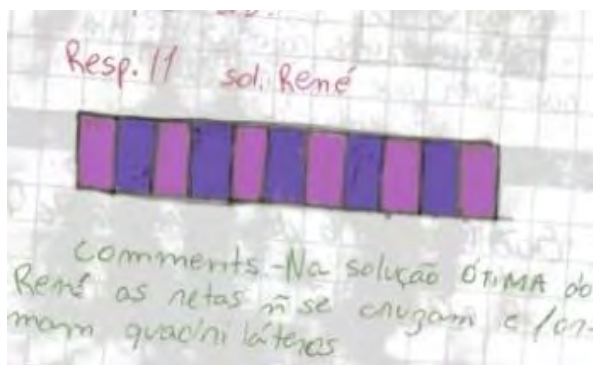 Resp. 11 sol. René
comments - Na solução ÓTIMA do
René as retas ñ se cruzam e for-
mam quadriláteros